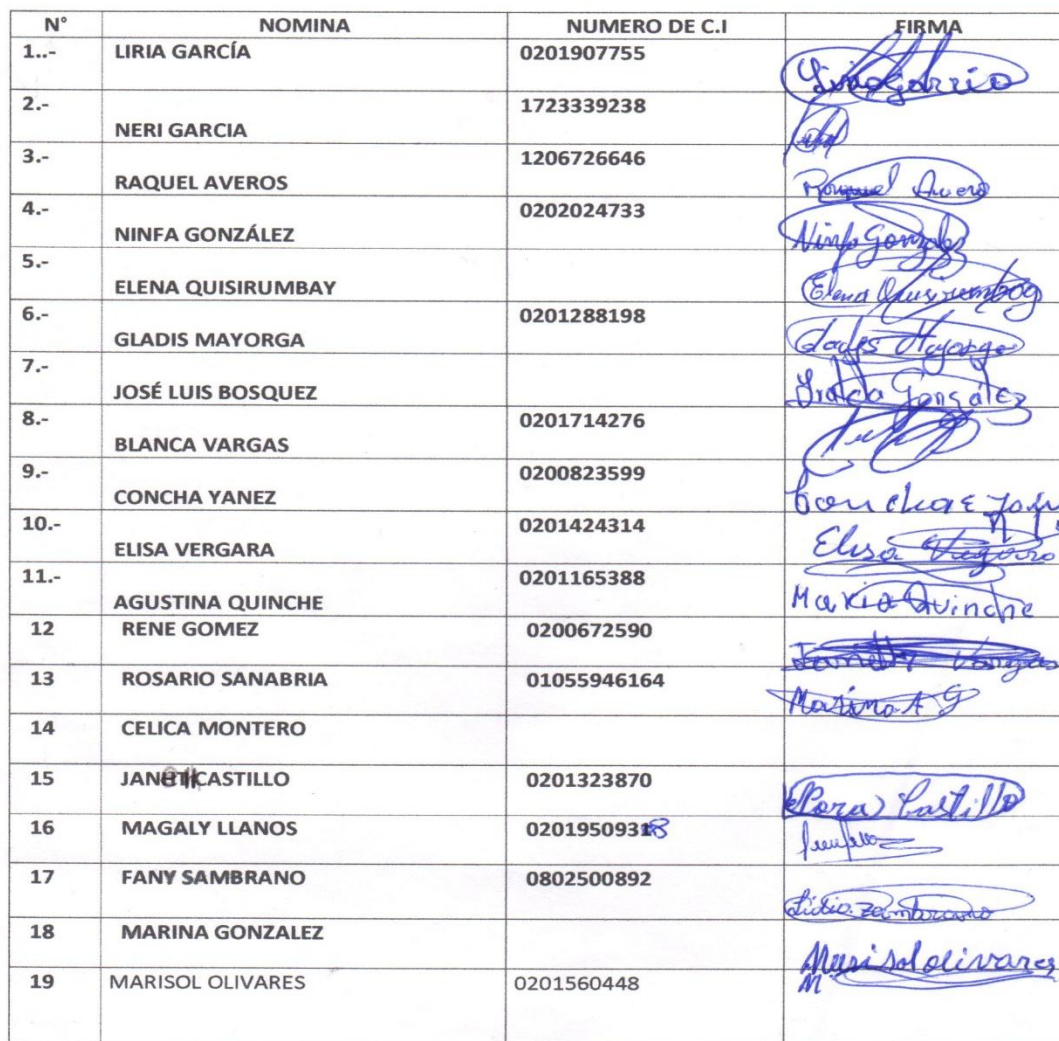 N° NOMINA NUMERO DE C.I FIRMA
1..- LIRIA GARCÍA 0201907755
2.- NERI GARCIA 1723339238
3.- RAQUEL AVEROS 1206726646 Raquel Avero
4.- NINFA GONZÁLEZ 0202024733 Ninfa Gonzalez
5.- ELENA QUISIRUMBAY Elena Quisirumbay
6.- GLADIS MAYORGA 0201288198 Mayorga
7.- JOSÉ LUIS BOSQUEZ González
8.- BLANCA VARGAS 0201714276
9.- CONCHA YANEZ 0200823599
10.- ELISA VERGARA 0201424314 Elisa
11.- AGUSTINA QUINCHE 0201165388 Maria Quinche
12 RENE GOMEZ 0200672590 Vargas
13 ROSARIO SANABRIA 01055946164
14 CELICA MONTERO
15 CASTILLO 0201323870 Castillo
16 MAGALY LLANOS
17 FANY SAMBRANO 0802500892 Lidia Zambrano
18 MARINA GONZALEZ Marisol olivares
19 MARISOL OLIVARES 0201560448 M